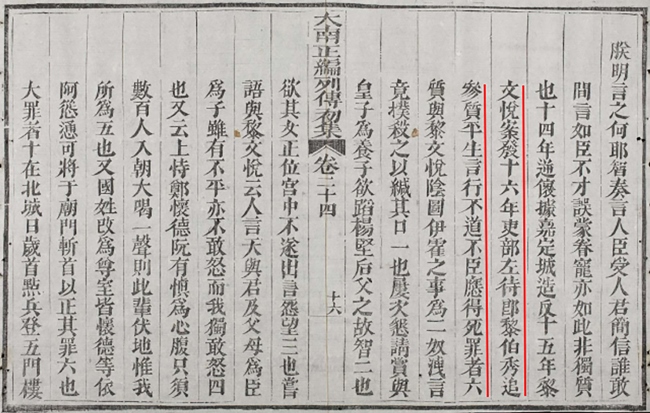 朕明言之何耶智奏言人臣受人君簡信誰敢
間言如臣不才誤蒙眷寵亦如此非獨質
也十四年逆𠐤據嘉定城造反十五年黎
文悅案發十六年吏部左侍郎黎伯秀追
參質平生言行不道不臣應得死罪者六
質與黎文悅陰圖伊霍之事為二奴洩言
竟撲殺之以緘其口一也屢次懇請實與
皇子為養子欲蹈楊堅后父之故智二也
大南正編列傳初集 卷二十四 十六
欲其女正位宮中不遂出言怨望三也嘗
語與黎文悅云人言天與君及父母為臣
為子雖有不平亦不敢怒而我獨敢怒四
也又云上恃鄭懷德阮有慎為心腹只須
數百人入朝大喝一聲則此輩伏地惟我
所為五也又國姓改為尊室皆懷德等依
阿慫慂可將于廟門斬首以正其罪六也
大罪者十在北城日歲首點兵登五門樓